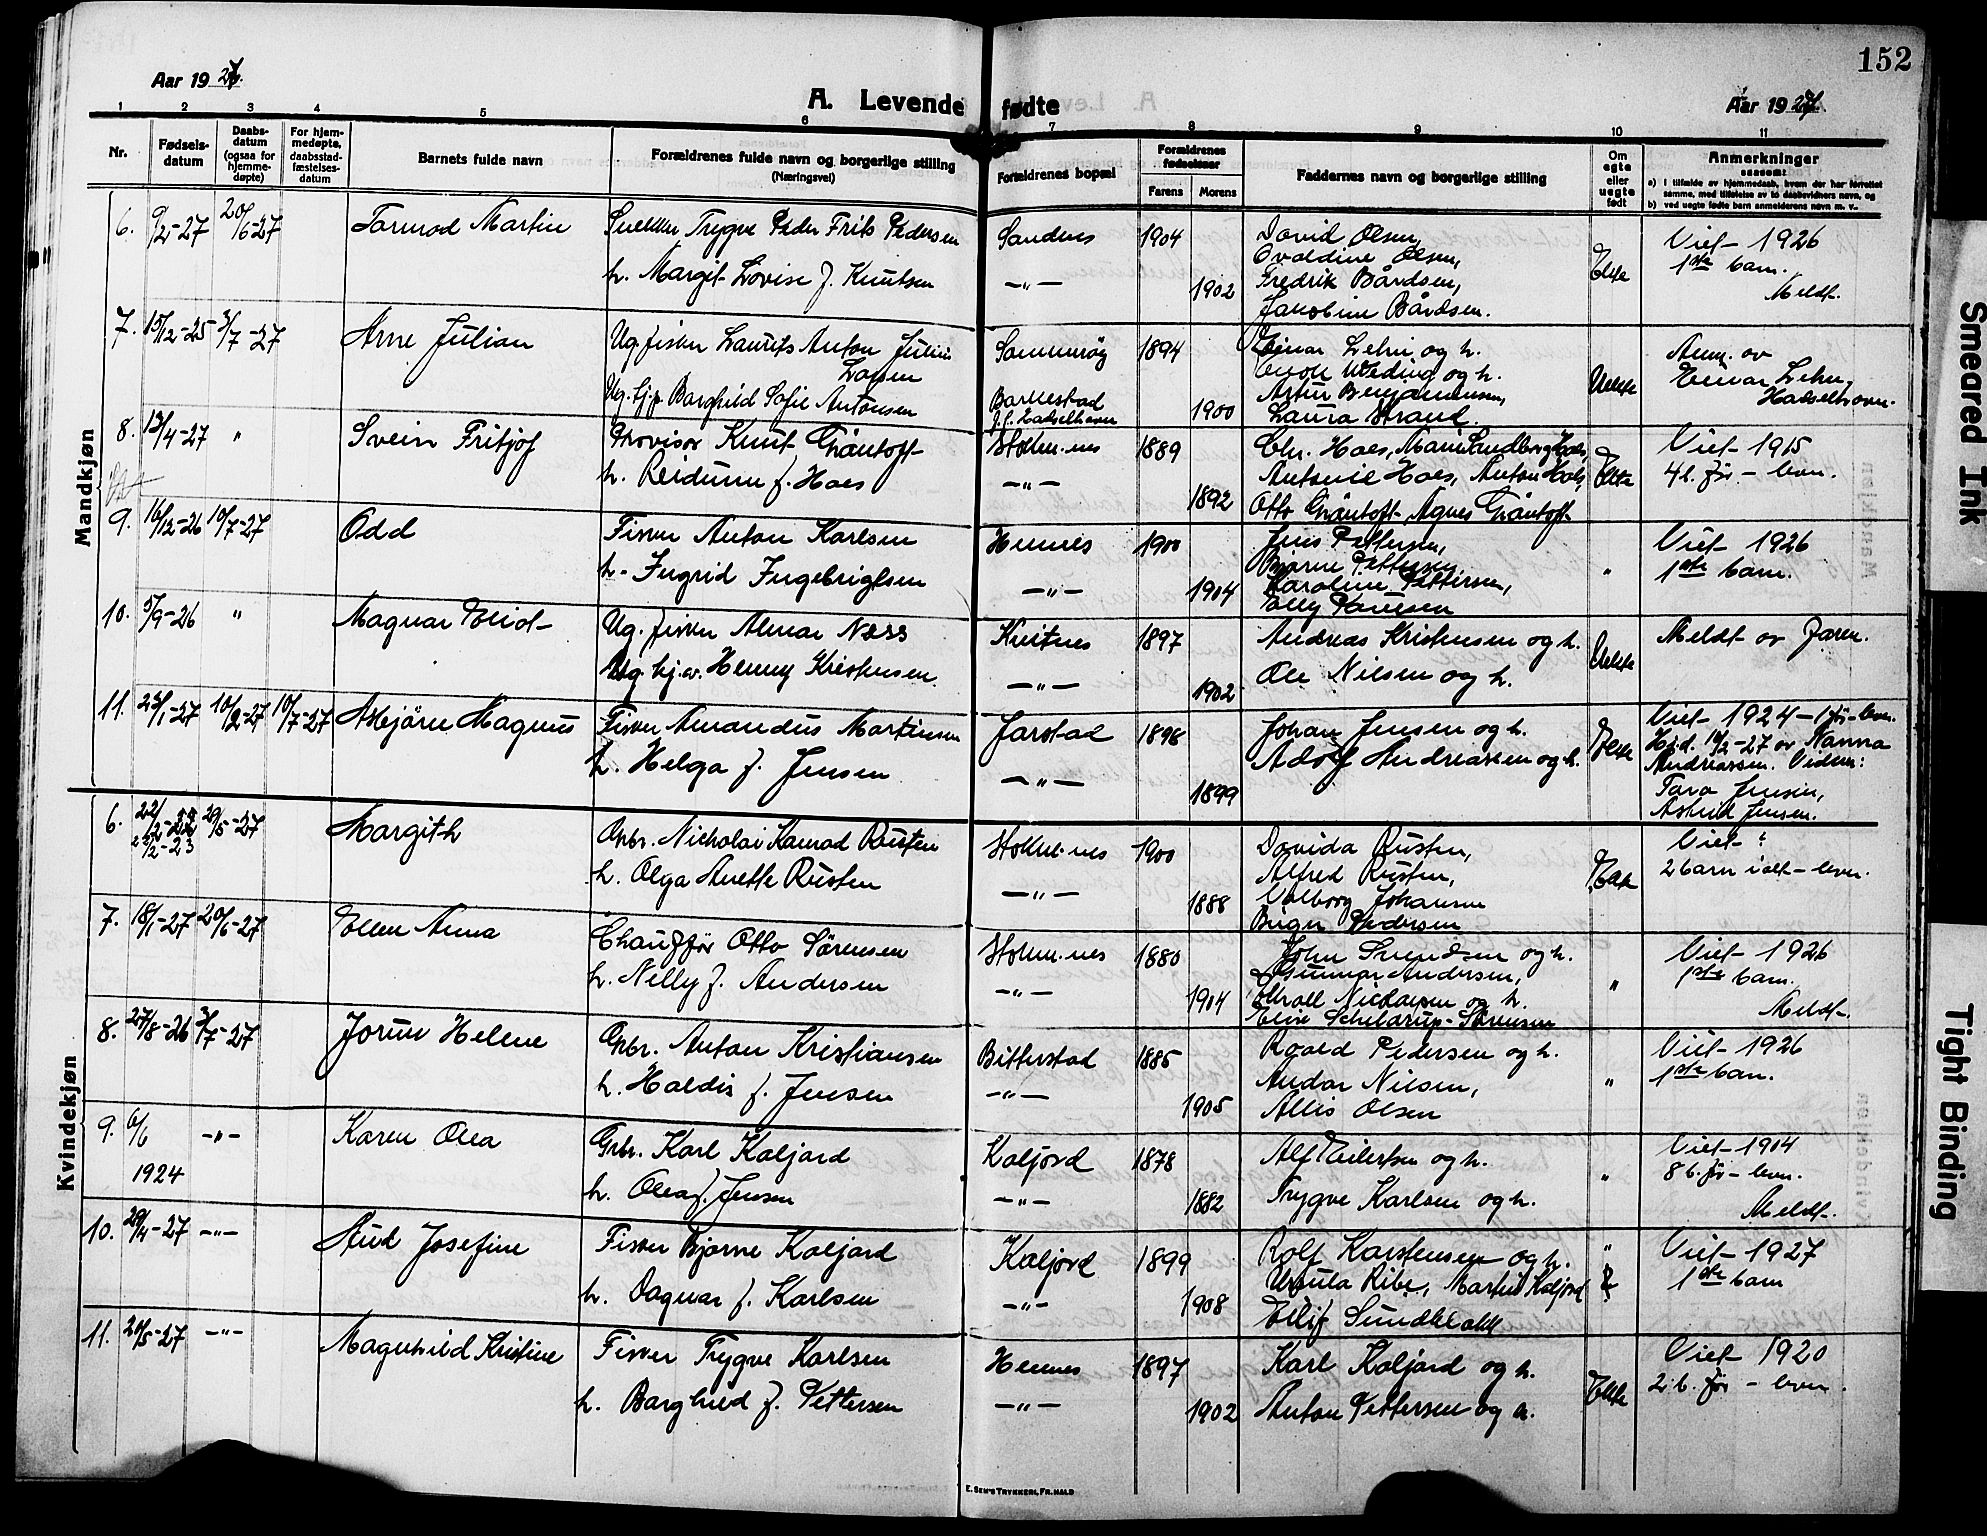 152
Aar 1927.
A. Levende fødte
Aar 1927.
1 2 3 4 5 6 7 8 9 10 11
Nr.
Fødsels-
datum
Daabs-
datum
(ogsaa for
hjemme-
døpte)
For hjem-
medøpte,
daabsstad-
fæstelses-
datum
Barnets fulde navn
Forældrenes fulde navn og borgerlige stilling
(Næringsvei)
Forældrenes bopæl
Forældrenes
fødselsaar
Farens Morens
Faddernes navn og borgerlige stilling
Om
egte
eller
uegte
født
Anmerkninger
saasom:
a) i tilfælde av hjemmedaab, hvem der har forrettet
samme, med tilføielse av to daabsvidners navn, og
b) ved uegte fødte barn anmelderens navn m. v.
Mandkjøn
6. 9/2-27 20/6-27 Tormod Martin
Snekker Trygve Peder Frits Pedersen
h. Margit Lovise f. Knutsen
Sandnes 1904
—„— 1902
David Olsen,
Ovaldine Olsen,
Fredrik Bårdsen,
Jakobine Bårdsen.
Ekte
Viet 1926
1ste barn.
Meldt.
7. 15/12-25 3/7-27 Arne Julian
Ug. fisker Laurits Anton Julius
Larsen
Ug. tj.p. Borghild Sofie Antonsen
1894
1900
Einar Lehn og h.
Artur Benjaminsen,
Laura Strand.
Uekte
Anm. av
Einar Lehn,
Hadselhavn.
8. 13/4-27 „ Svein Fritjof
Provisor Knut Gräntoft
h. Reidunn f. Haes
Stokm.nes 1889
—„— 1892
Chr. Haes, Marie Sundberg Haes,
Antonie Haes, Anton Haes,
Otto Gräntoft, Agnes Gräntoft
Ekte
Viet 1915
4 b. før – lever.
9. 16/12-26 10/7-27 Odd
Fisker Anton Karlsen
h. Ingrid Ingebrigtsen
Hennes 1900
—„— 1904
Jens Pettersen,
Bjarne Pettersen,
Karoline Pettersen,
„
Viet 1926
1ste barn.
10. 5/9-26 „ Magnar Eliot
Ug. fisker Almar Næss
Ug. hj.v. Henny Kristensen
Kvitnes 1897
—„— 1902
Andreas Kristensen og h.
Ole Nilsen og h.
Uekte
Meldt av faren.
11. 23/1-27 10/2-27 10/7-27 Asbjörn Magnus
Fisker Amandus Martinsen
h. Helga f. Jensen
Jarstad 1898
—„— 1899
Johan Jensen og h.
Adolf Andreassen og h.
Ekte
Viet 1924 – 1 før – lever.
Hj.d. 10/2-27 av Nanna
Andreassen. Vidner:
Tora Jensen,
Astrid Jensen.
Kvindekjøn
6. 29/5-27 Margith
Arbr. Nicholai Konrad Rusten
h. Olga Anette Rusten
Stokm.nes 1900
—„— 1888
Davida Rusten,
Alfred Rusten,
Valborg Johansen
Birger Pedersen
Viet „
2 barn i alt – lever.
7. 18/1-27 20/6-27 Ellen Anna
Chauffør Otto Sörensen
h. Nelly f. Andersen
Stokm.nes 1880
—„— 1904
John Svendsen og h.
Gunnar Andersen,
Elise Schelderup-Sörensen
„
Viet 1926
1ste barn.
Meldt.
8. 27/8-26 3/7-27 Jorun Helene
Grbr. Anton Kristiansen
h. Haldis f. Jensen
Bitterstad 1885
—„— 1905
Roald Pedersen og h.
Andor Nilsen,
Allis Olsen
„
Viet 1926
1ste barn.
9. 6/6 —„— Karen Olea
1924
Grbr. Karl Kaljord
h. Olea f. Jensen
Kaljord 1878
—„— 1882
Alf Eilertsen og h.
Trygve Karlsen og h.
„
Viet 1904
8 b. før – lever.
Meldt.
10. 29/4-27 —„— Aud Josefine
Fisker Bjarne Kaljord
h. Dagmar f. Karlsen
Kaljord 1899
—„— 1908
Rolf Karstensen og h.
Ursula Ribe, Martin Kaljord
Eilif Sundklakk
„
Viet 1927
1ste barn
11. 20/5-27 —„— Magnhild Kristine
Fisker Trygve Karlsen
h. Borghild f. Pettersen
Hennes 1897
—„— 1902
Karl Kaljord og h.
Anton Pettersen og h.
Ekte
Viet 1920
2 b. før – lever.
E. Sem's Trykkeri, Fr.hald
Smeared Ink
Tight Binding